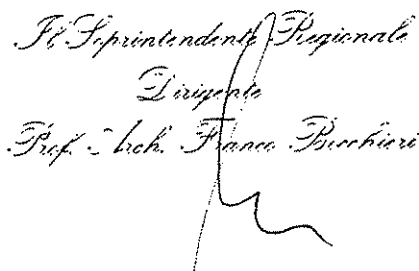 Il Soprintendente Regionale
Dirigente
Prof. Arch. Franco Bocchieri